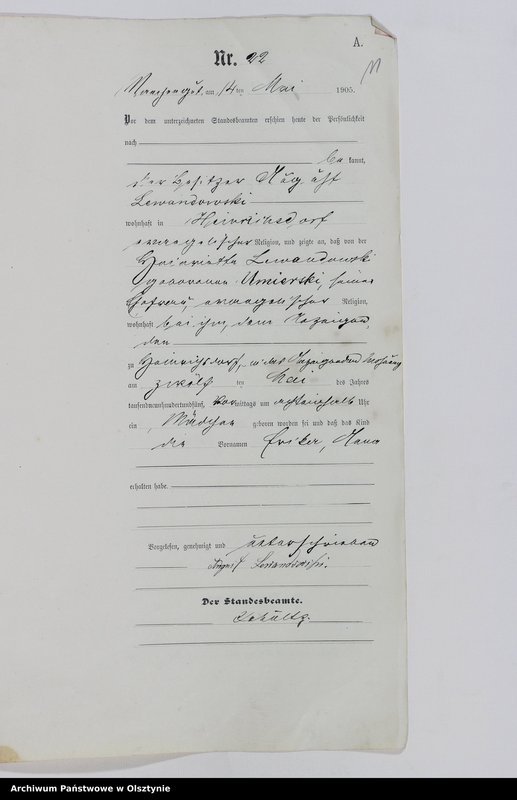 A.
11
Nr. 22
Manchengut, am 14 ten Mai 1905.
Vor dem unterzeichneten Standesbeamten erschien heute der Persönlichkeit
nach
bekannt,
der Besitzer August
Lewandowski
wohnhaft in Heinrichsdorf
evangelischer Religion, und zeigte an, daß von der
Henriette Lewandowski
geborenen Umierski, seiner
Ehefrau, evangelischer Religion,
wohnhaft bei ihm, dem Anzeigen
den
zu Heinrichsdorf, in des Anzeigenden Wohnung
am zwölf ten Mai des Jahres
tausendneunhundertundfünf, Vormittags um Uhr
ein Mädchen geboren worden sei und daß das Kind
die Vornamen Erika,
erhalten habe.
Vorgelesen, genehmigt und unterschrieben
August Lewandowski.
Der Standesbeamte.
Schultz.
Archiwum Państwowe w Olsztynie